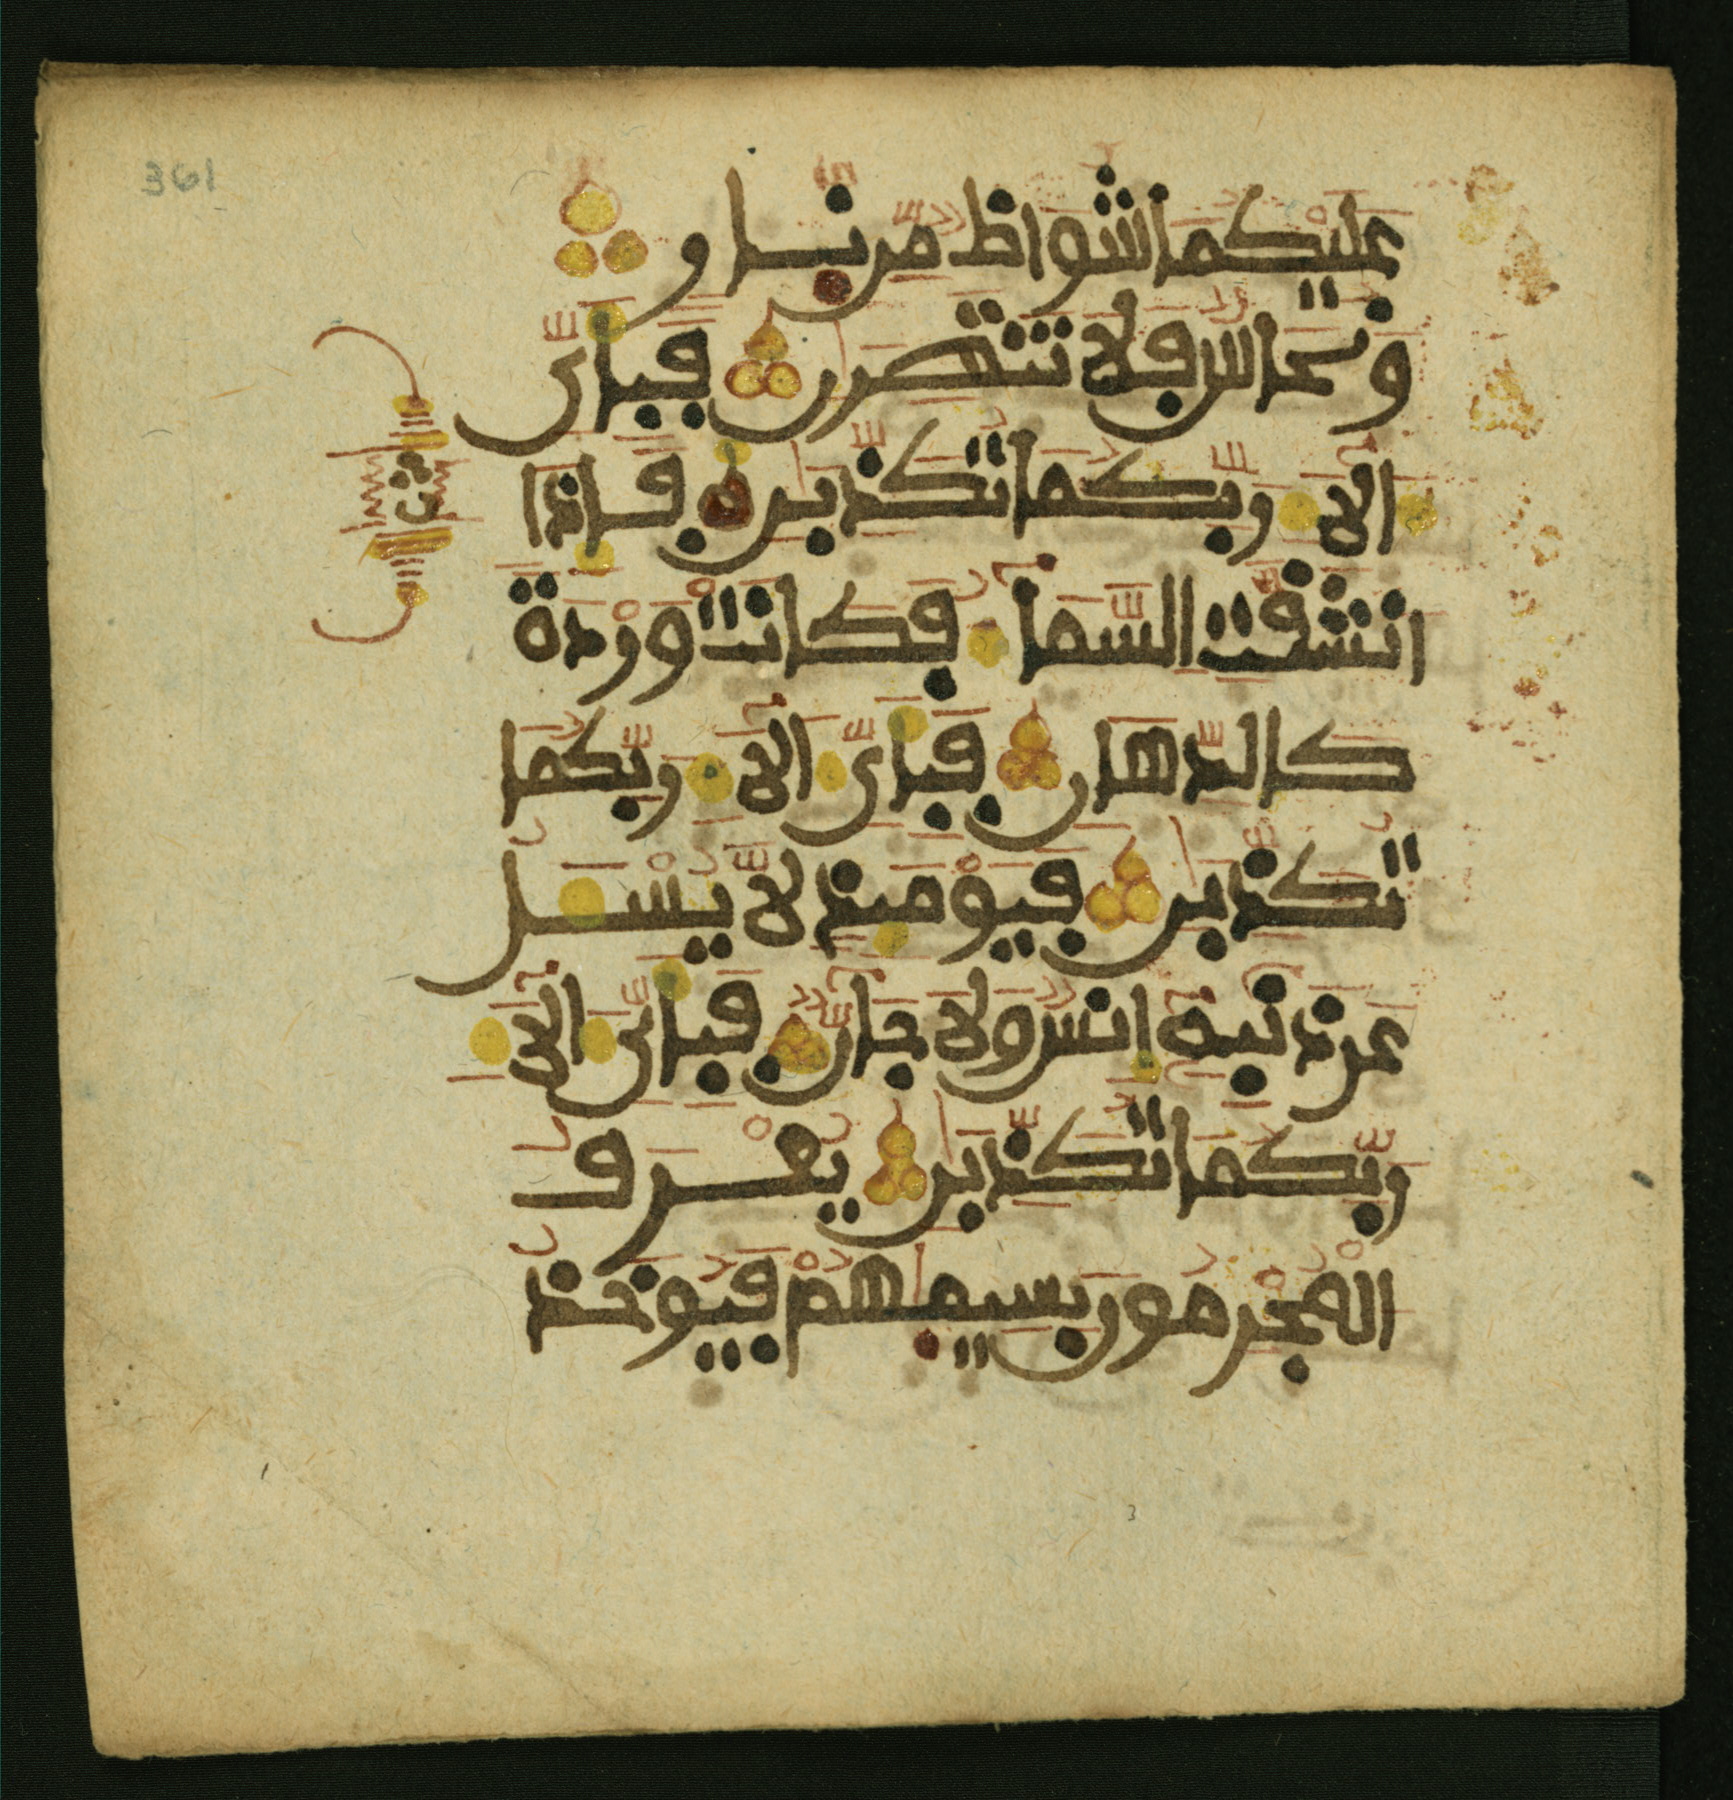 361
عليكما شواظ من نار و
ونحاس فلا تنتصرن فبأي
ءالاء ربكما تكذبن فإذا
انشقت السماء فكانت وردة
كالدهان فبأي ءالاء ربكما
تكذبن فيومئذ لا يسـٔل
عن ذنبه إنس ولا جان فبأي ءالاء
ربكما تكذبن يعرف
المجرمون بسيمهم فيوخذ
3